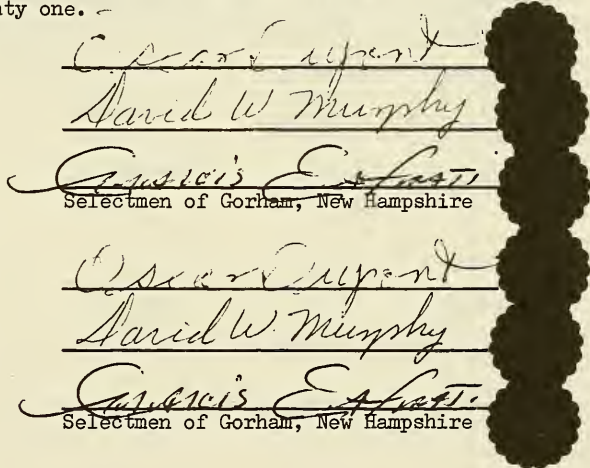 nty one.
Oscar Dupont
David W Murphy
Francis
Selectmen of Gorham, New Hampshire
Oscar Dupont
David W. Murphy
Francis
Selectmen of Gorham, New Hampshire